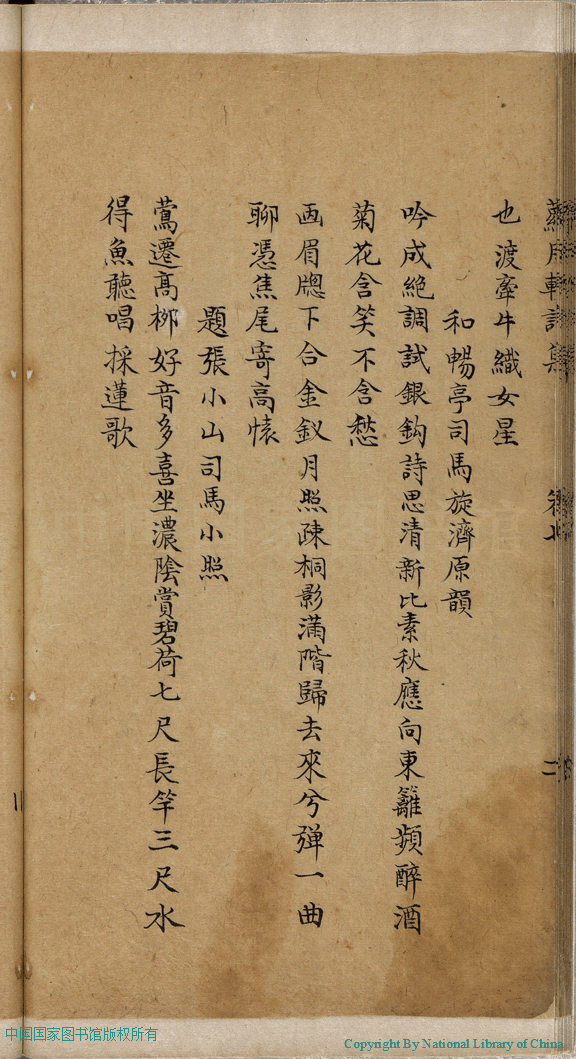 也渡牽牛織女星
和暢亭司馬旋濟原韻
吟成絕調試銀鈎詩思清新比素秋應向東籬頻醉酒
菊花含笑不含愁
画眉牕下合金釵月照疎桐影滿階歸去來兮弹一曲
聊憑焦尾寄高懐
題張小山司馬小照
鶯遷髙柳好音多喜坐濃陰賞碧荷七尺長竿三尺水
得魚聽唱採蓮歌
中国国家图书馆版权所有
Copyright By National Library of China